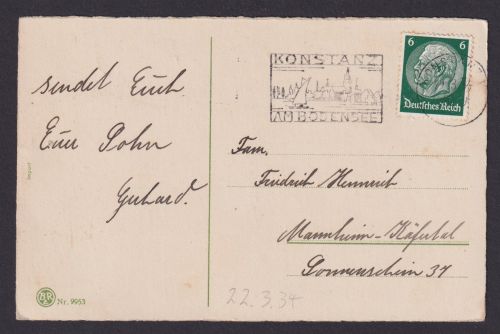 sendet Euch
Euer Sohn
Gerhard.
Import
AR
Nr. 9953
KONSTANZ
AM BODENSEE
6 6
Deutsches Reich
Fam.
Friedrich Heinrich
Mannheim-Käfertal
Sonnenschein 37
22.3.34